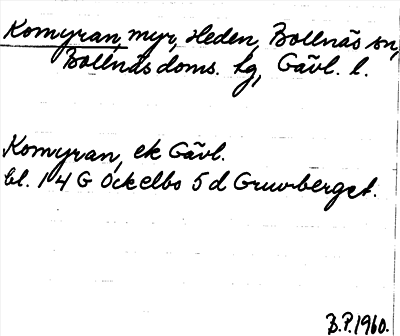 Komyran, myr, Heden, Bollnäs sn,
Bollnäs doms. tg, Gävl. l.
Komyran, ek Gävl.
bl. 14 G Ockelbo 5 d Gruvberget.
B.P. 1960.